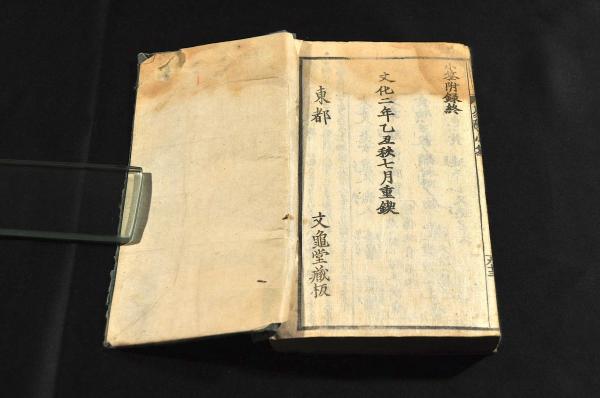 小筌附録終
文化二年乙丑秋七月重鍥
東都
文龜堂藏板